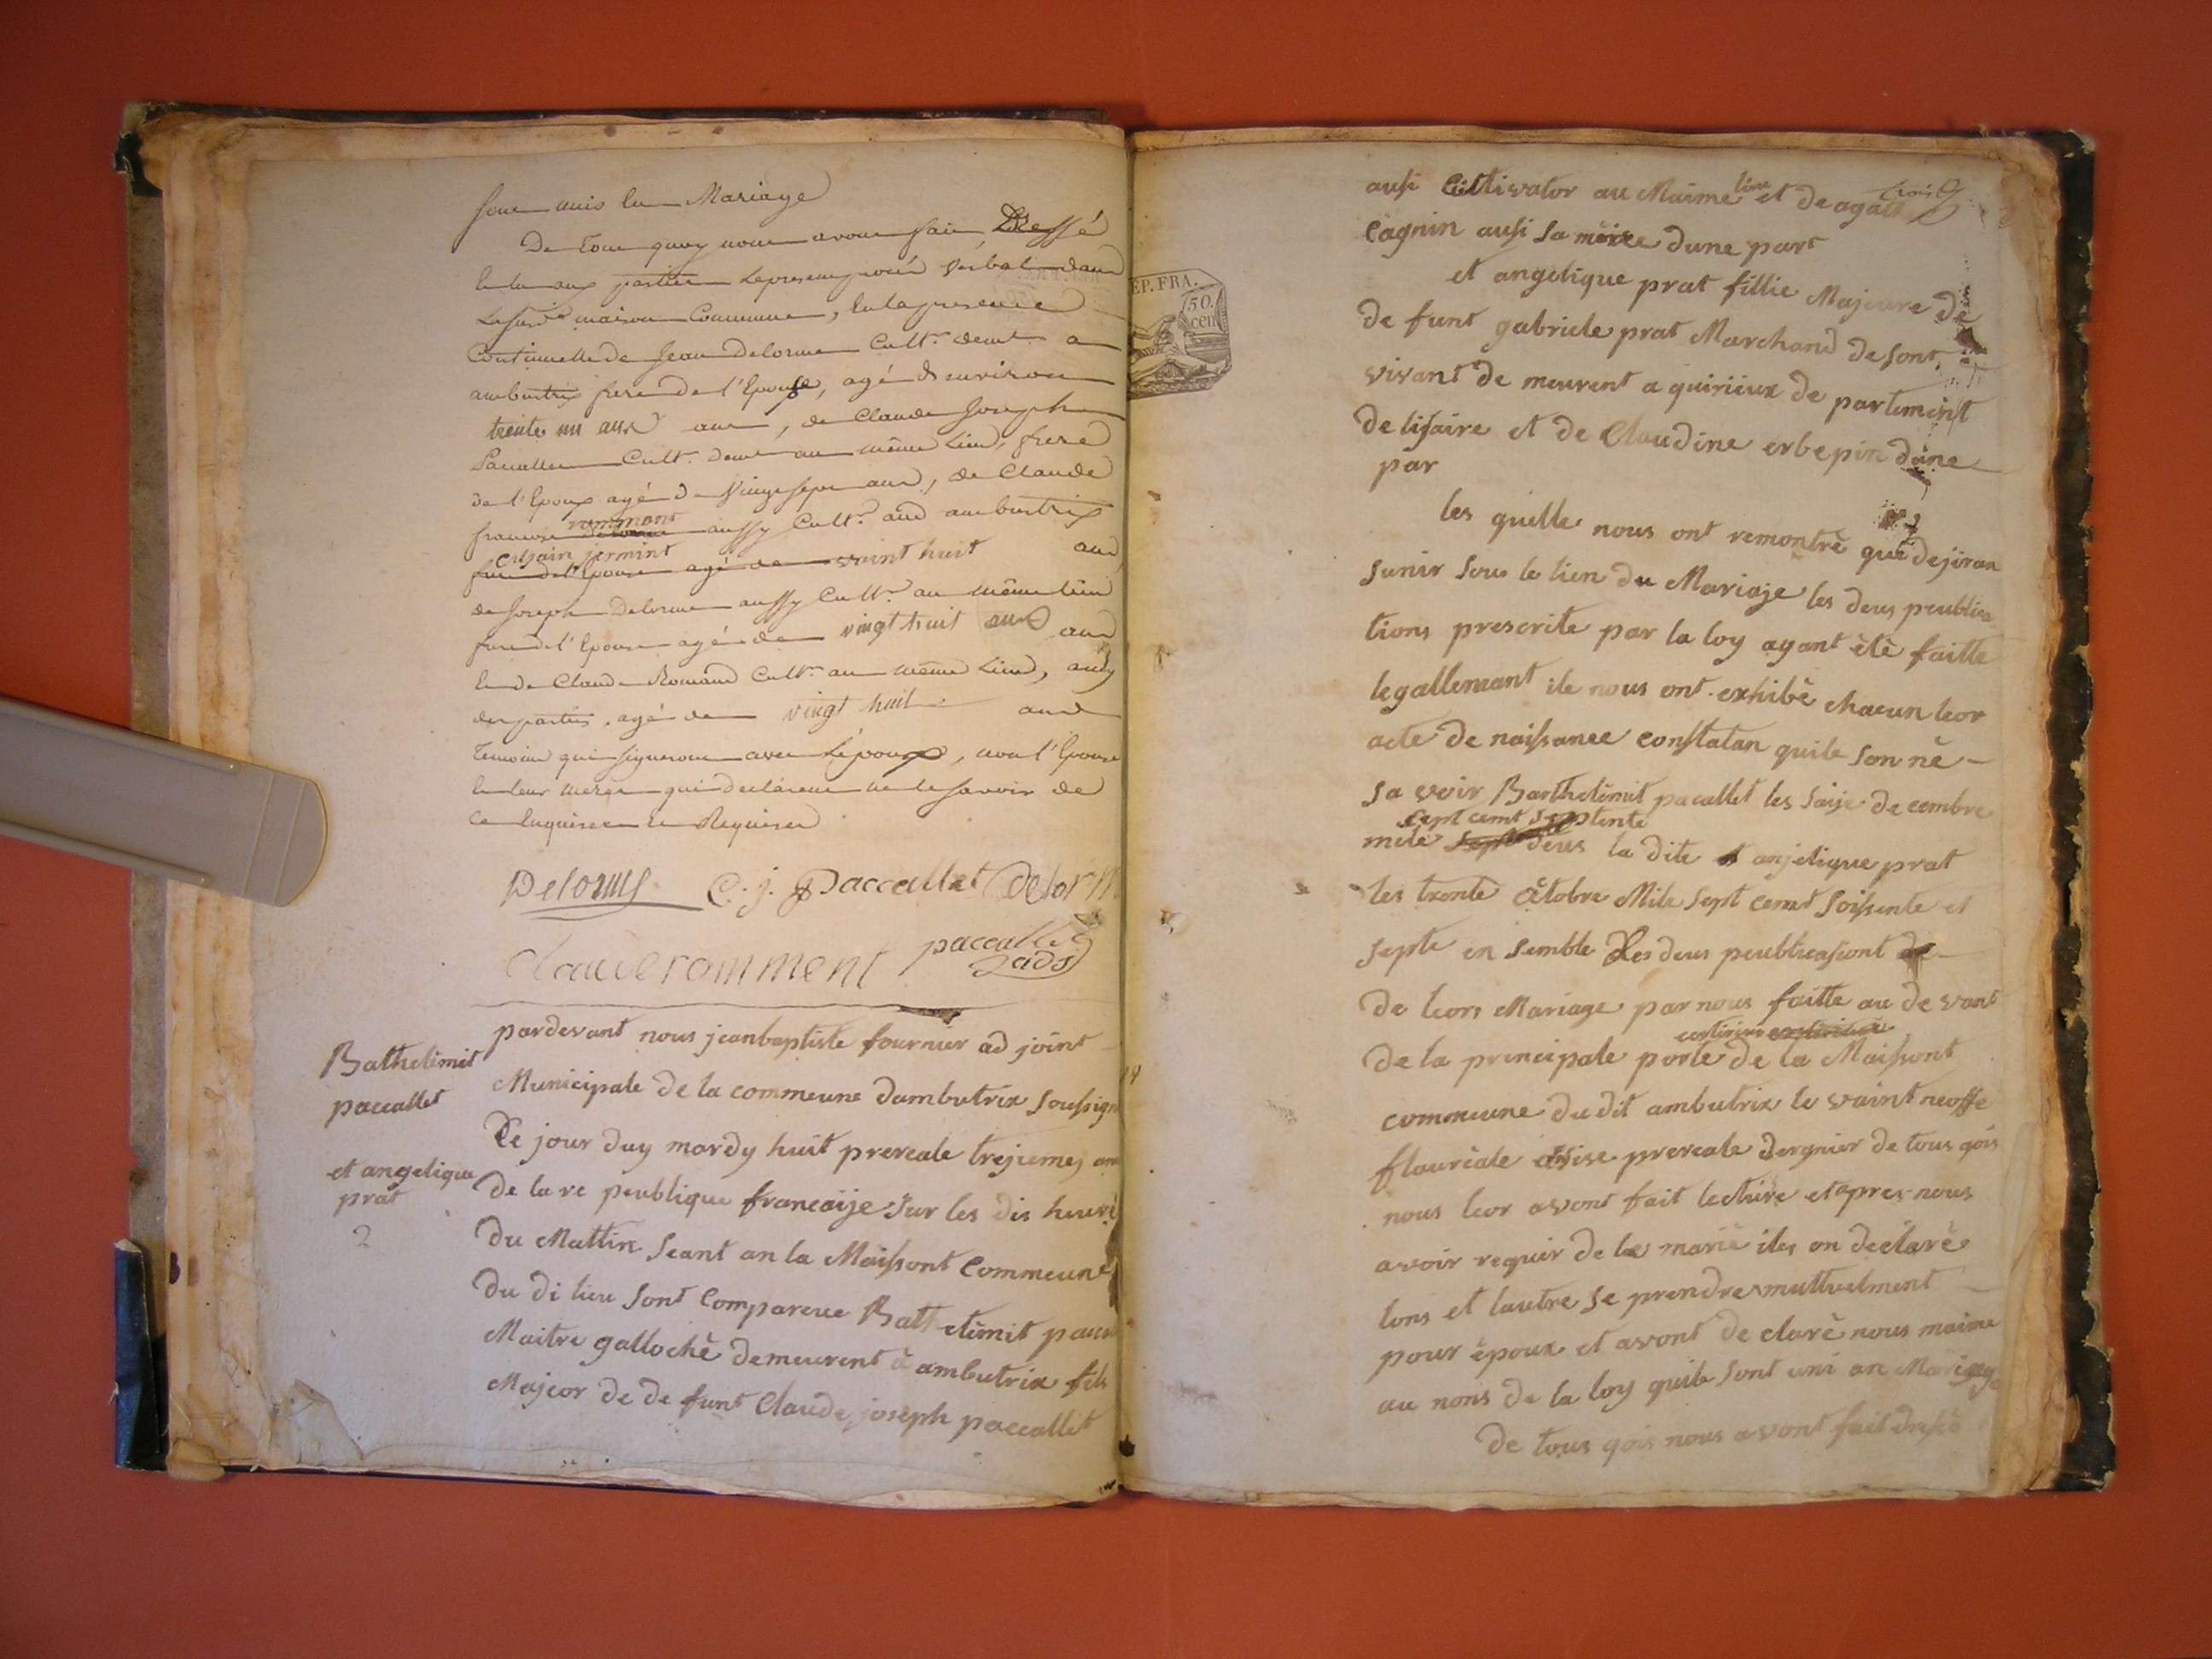 sont unis en Mariage
De tout quoy nous avons fait Dressé
en lun aux parties le present procés verbal dans
la susd. maison Commune, en la presence
Continuelle de Jean Delorme Cultr. demt. a
ambutrix frere de l'Epouse, agé d'environ
trente un ans ans, de Claude Joseph
Paccallet Cult. demt au même Lieu, frere
de l'Epoux agé de vingt sept ans, de Claude
françois rommant aussy Cultr. aud ambutrix
cusain jermint
frere de l'Epouse agé de vaint huit ans
de Joseph Delorme aussy Cultr. au même lieu
frere de l'Epouse agé de vingt huit ans ans
et de Claude Romand Cultr. au même Lieu, amy
des parties, agé de vingt huit ans
Temoins qui signeront avec L'époux, non l'Epouse
et leur meres qui declarent ne le savoir de
ce Enquises et Requises
Delorme C. j. Paccallet Delorm
Claude romment paccallet
2 ads
Bathelimit
paccallet
et angelique
prat
2
pardevant nous jeanbaptiste fournier ad joint
Municipale de la commeune dambutrix soussign
Ce jour duy mardy huit prereale trejieme, ane
de la re peublique francaije sur les dis heure
du Mattin seant an la Maissont Commeune
du di lieu sont Compareue Batt elimit paccal
Maitre gallochè demeurent à ambutrix fils
Majeor de de funt Claude joseph paccallet
trois
REP. FRA.
50.
cen
ausi Cultivator au Maime lieu et de agate
Cagnin ausi sa mère dune part
et angelique prat fillie Majeure de
de funt gabriele prat Marchand de sont
vivant de meurent a quirieux de partement
de lisaire et de Claudine erbepin dune
par
les quelle nous ont remontrè que dejiran
sunir sous le lien du Mariaje les deus peublica
tions prescrite par la loy ayant ètè faitte
legallemant ile nous ont exhibè chacun leor
acte de naissance constatan quile son nè
sa voir Barthelimit pacallet les saije decembre
sept cemt septente
mile sept deus la dite et anjelique prat
les trente òctobre Mile sept cemt soissente et
septe en semble Les deus peublicassiont de
de leors Mariage par nous faitte au devant
de la principale porte de la Maissont
commeune du dit ambutrix le vaint neoffe
flaurèale et sise prereale dergnier de tous qois
nous leor avont fait lecture et apres nous
avoir requir de le mariè iles on dèclarè
lons et lautre se prendre muttuelment
pour èpoux et avont de clarè nous maime
au nons de la loy quile sont uni an Mariage
De tous qois nous avont fait dressè